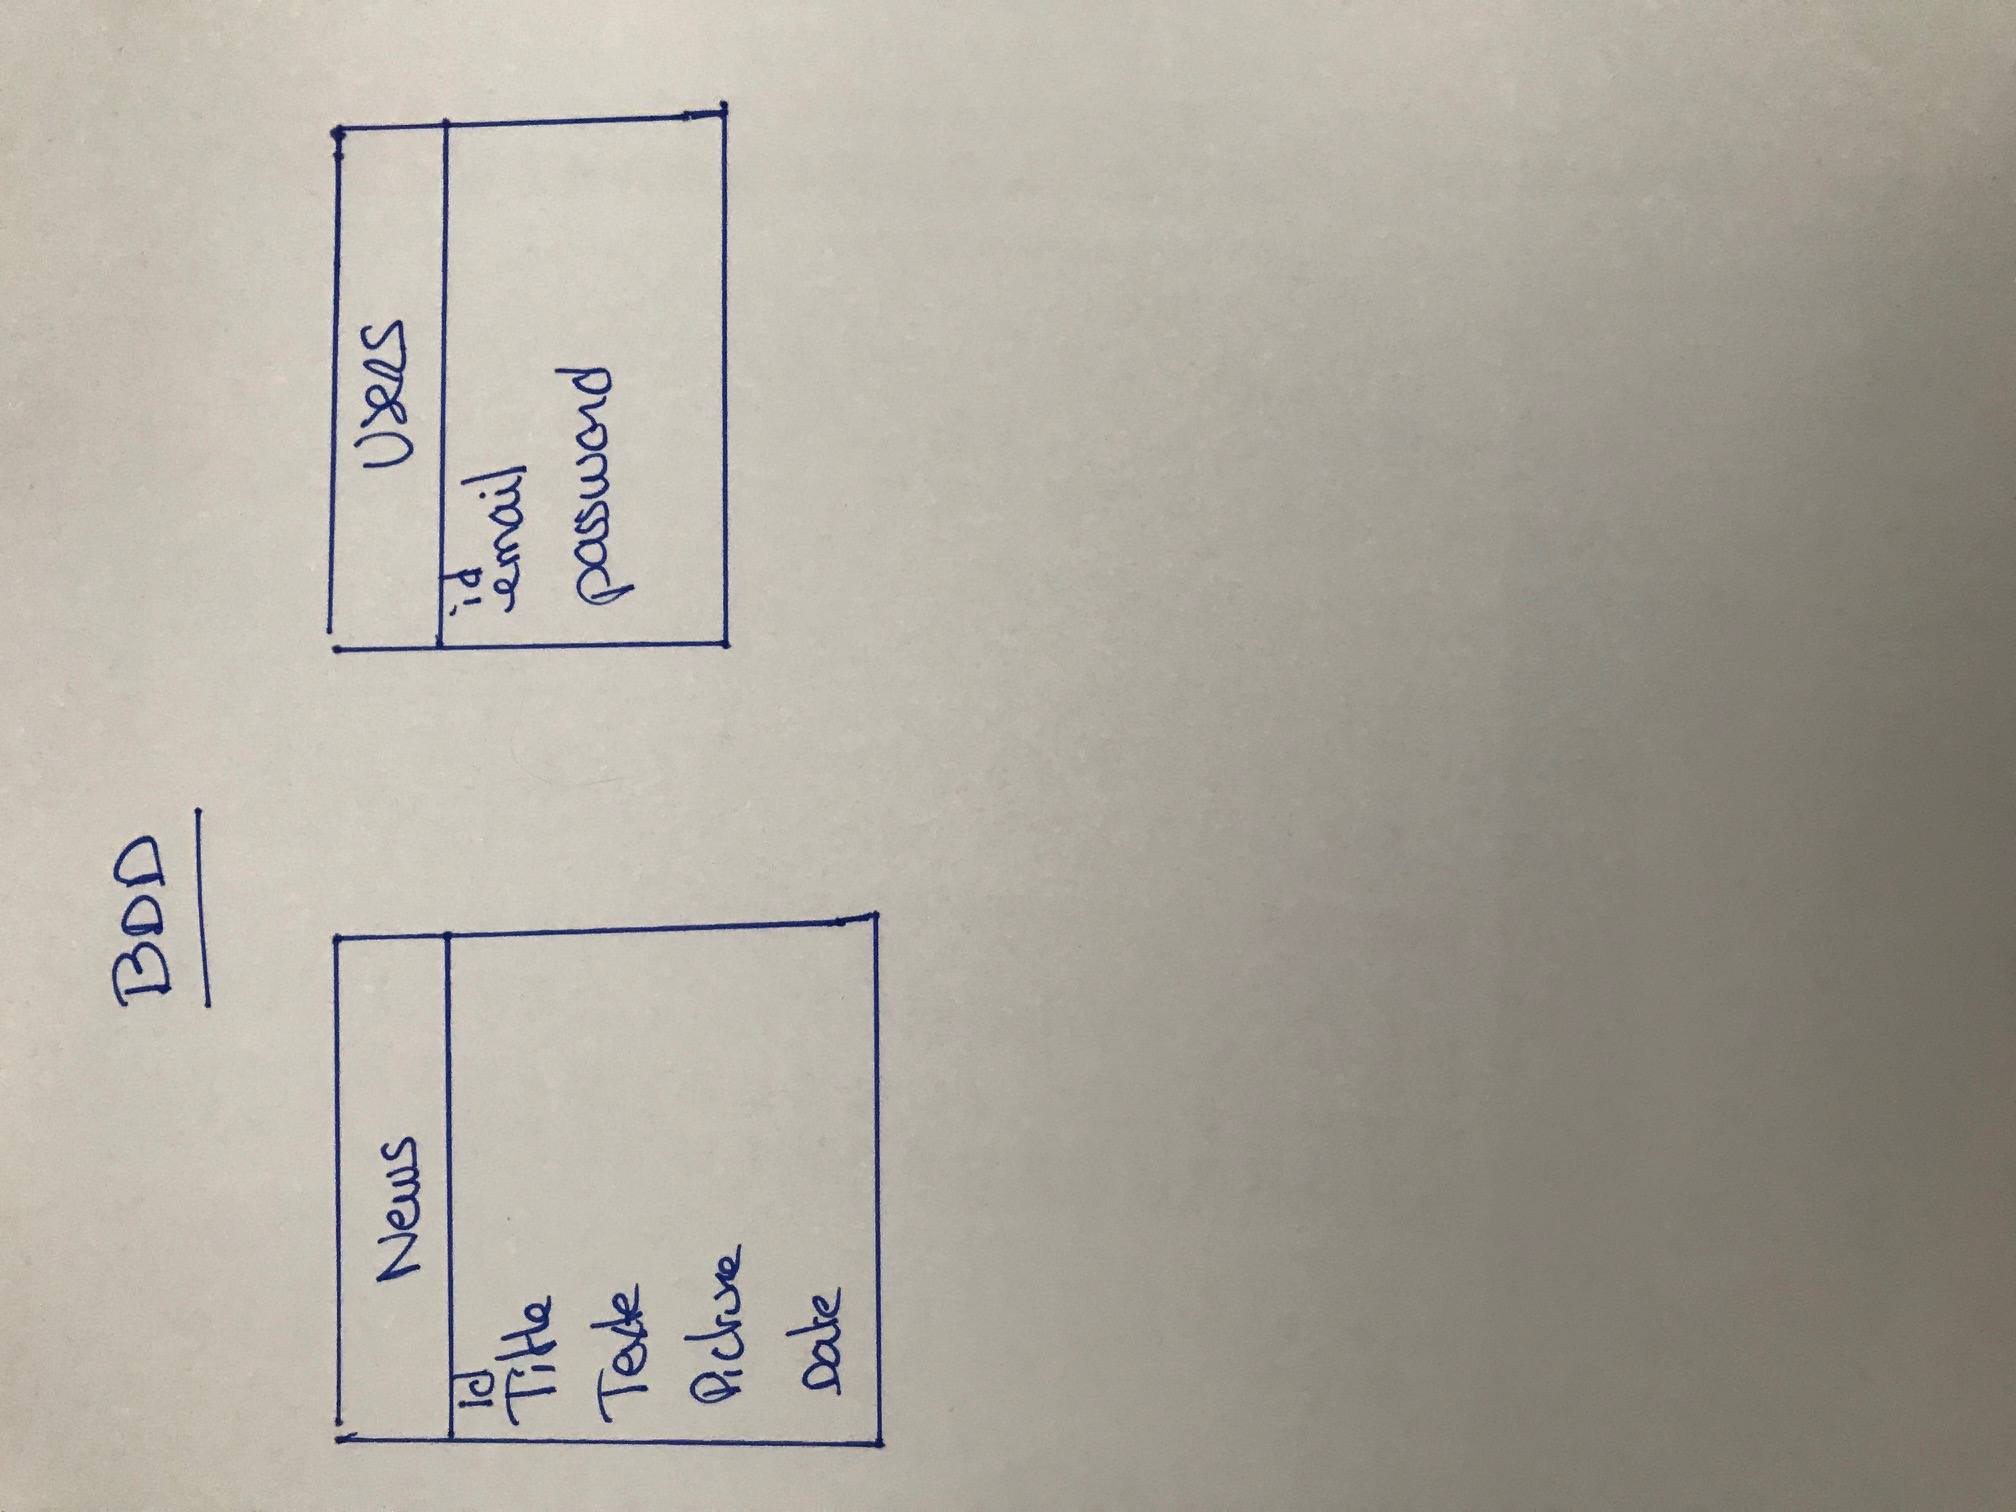 BDD
News
id
Title
Texte
Picture
Date
Users
id
email
password